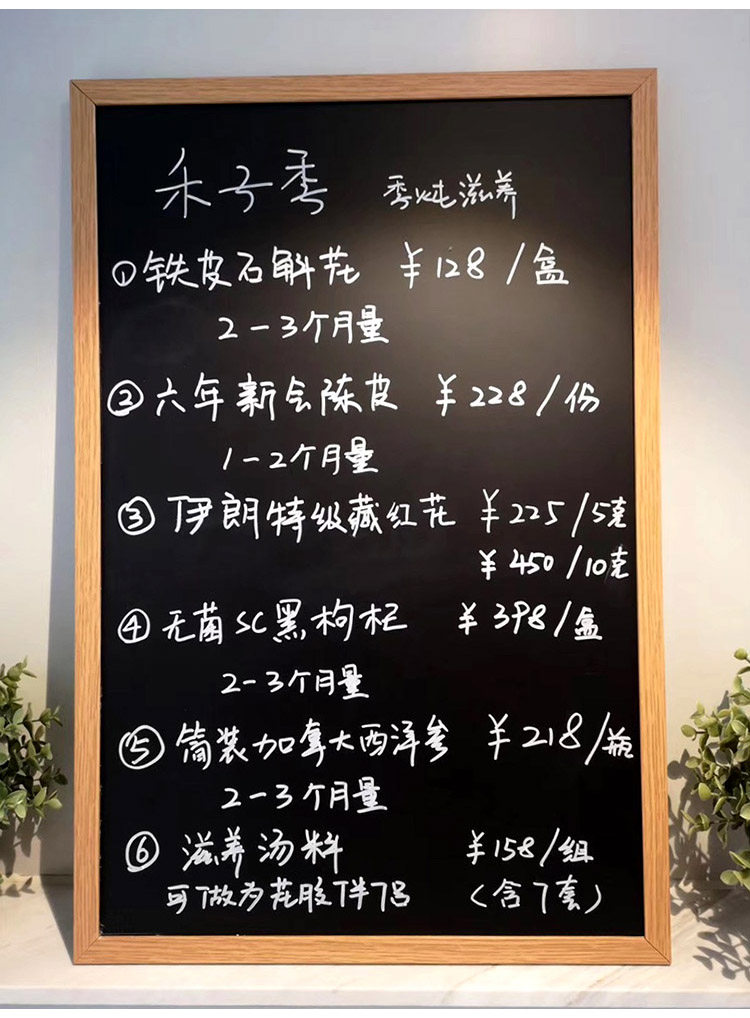 禾子季 季炖滋养
①铁皮石斛花 ¥128/盒
2-3个月量
②六年新会陈皮 ¥228/份
1-2个月量
③伊朗特级藏红花 ¥225/5克
¥450/10克
④无菌SC黑枸杞 ¥398/盒
2-3个月量
⑤筒装加拿大西洋参 ¥218/瓶
2-3个月量
⑥滋养汤料 ¥158/组
可做为花胶伴侣 (含7套)